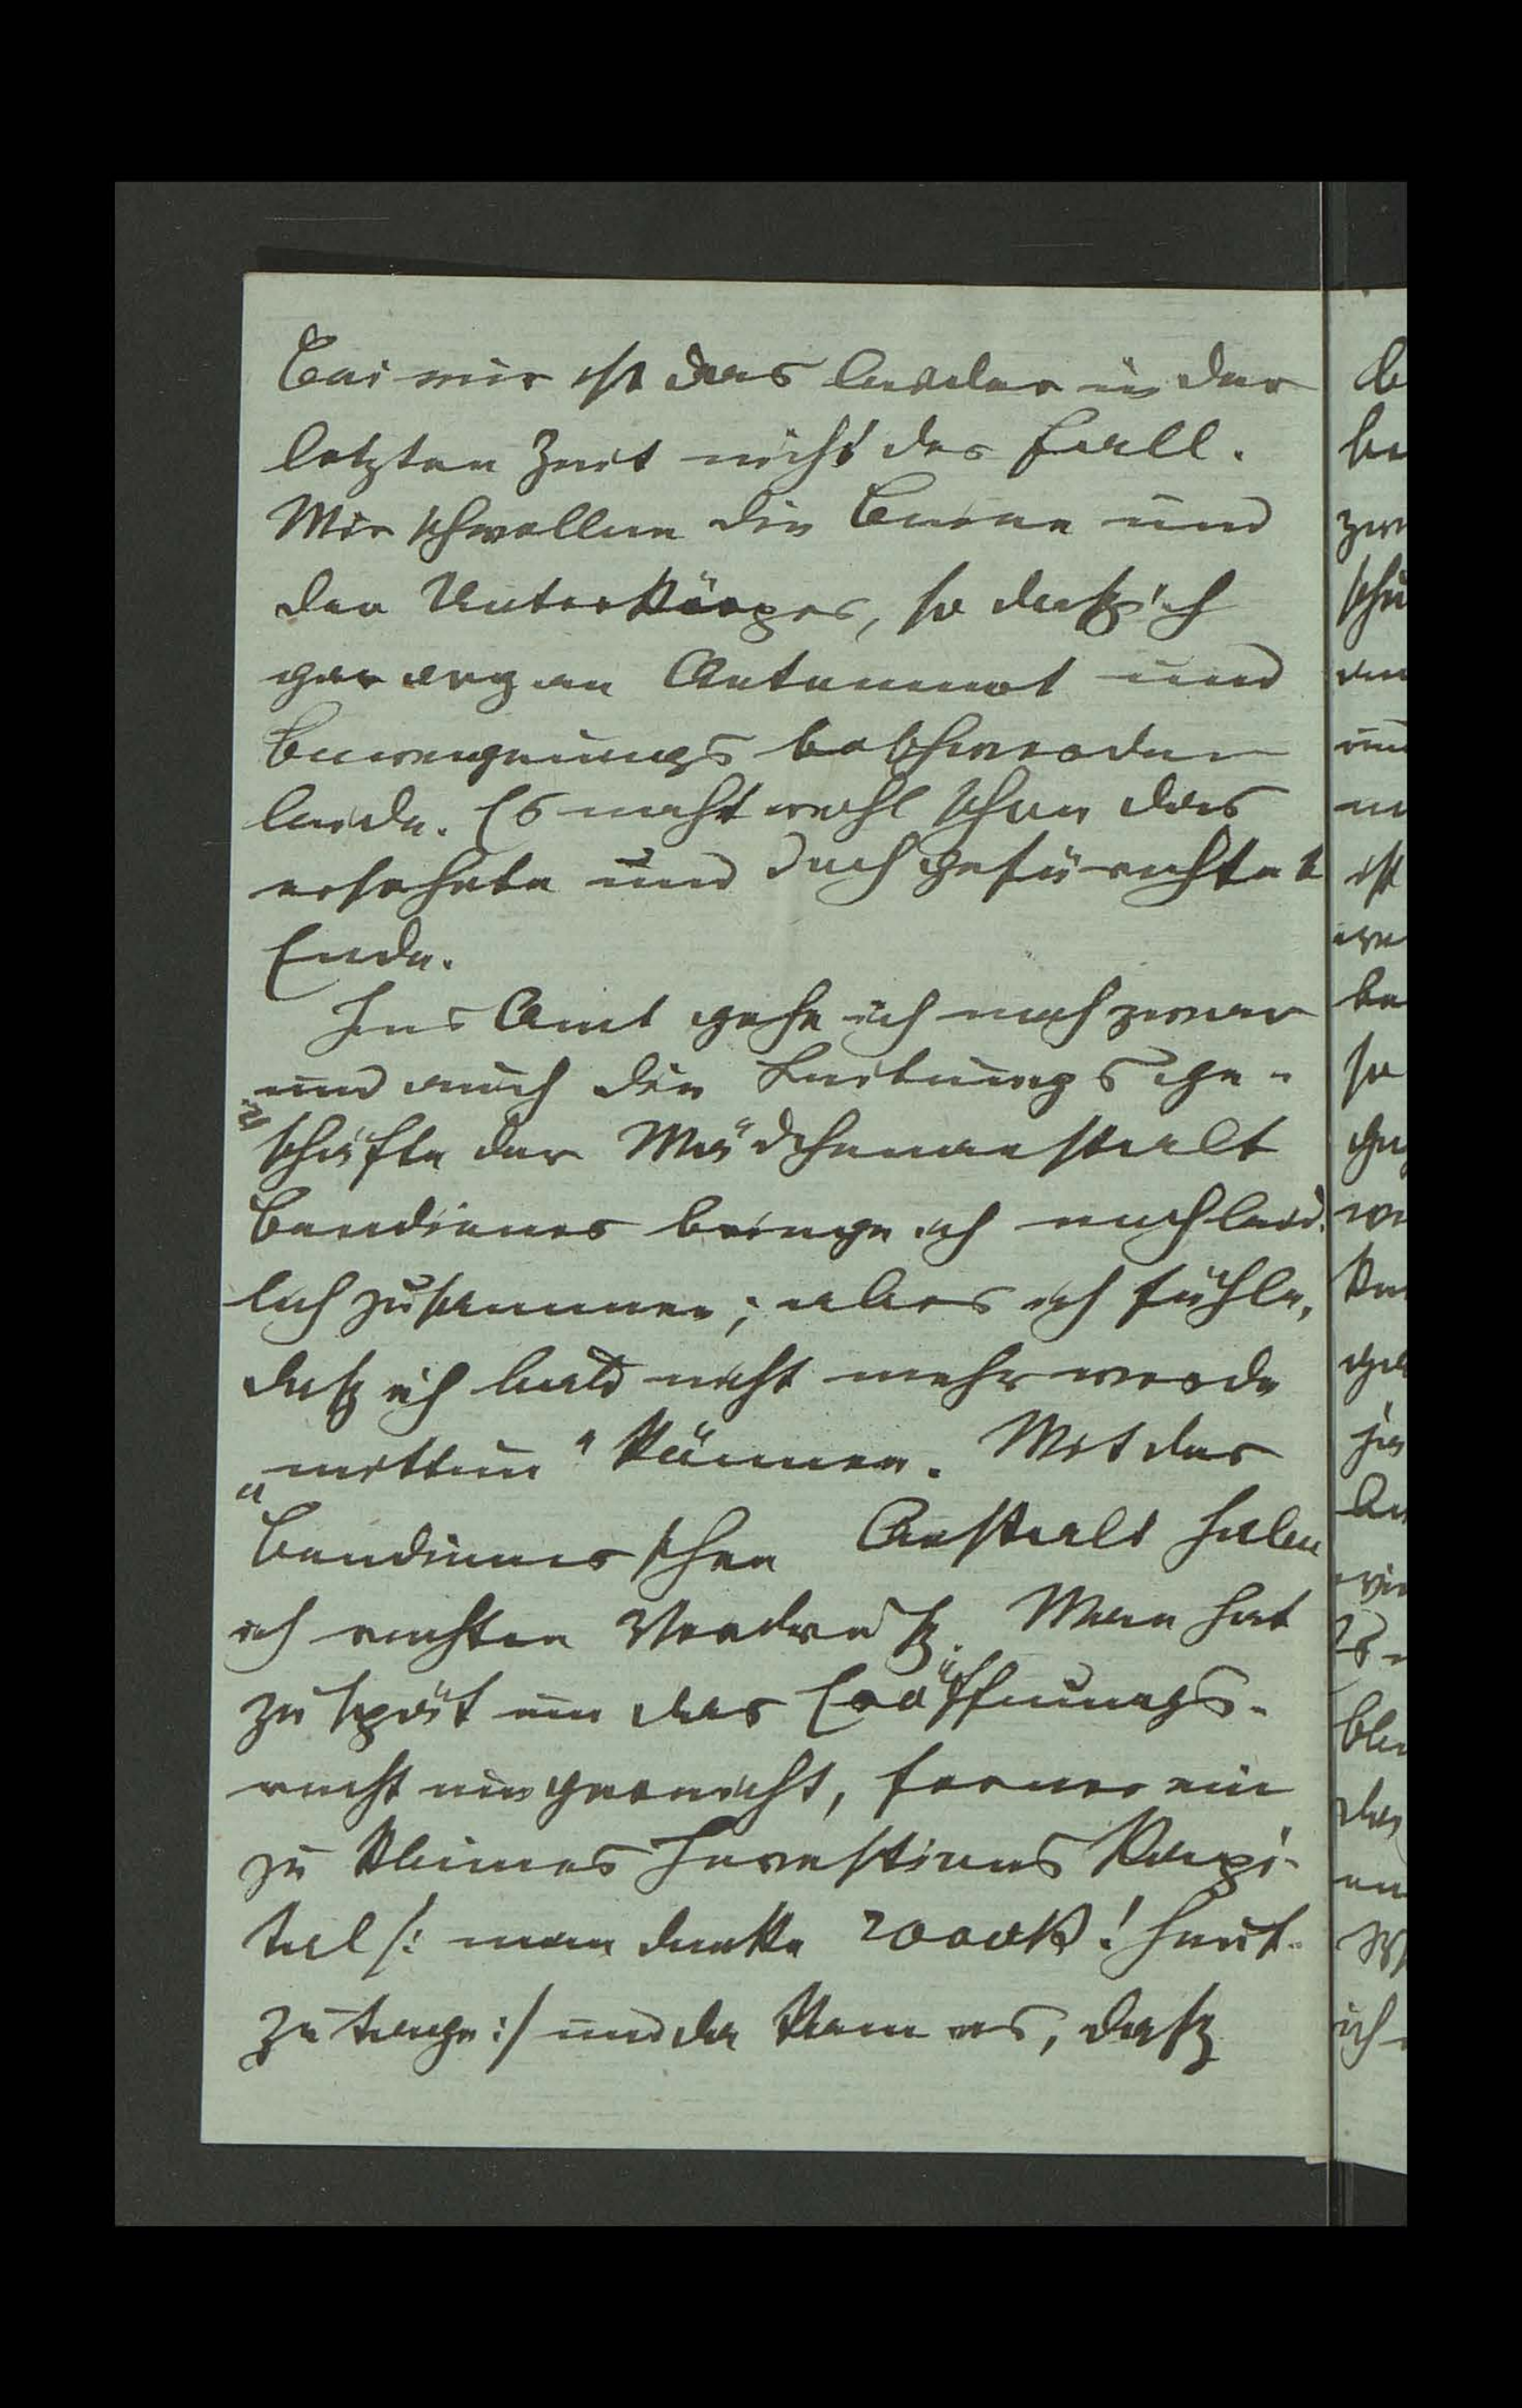 Bei mir ist das leider in der
letzten Zeit nicht der Fall.
Mir schwellen die Beine und
der Unterkörper, so daß ich
gar arg an Atemnot und
Bewegungsbeschwerden
leide. Es naht wohl schon das
ersehnte und doch gefürchtete
Ende.
Ins Amt gehe ich noch zwar
und auch die Leitungsge-
schäfte der Mädchenanstalt
Bendiener bringe ich noch leid-
lich zusammen; aber ich fühle,
daß ich bald nicht mehr werde
„mittun“ können. Mit der
Bendienerschen Anstalt habe
ich rechten Verdruß. Man hat
zu spät um das Eröffnungs-
recht eingereicht, ferner ein
zu kleines Investions Kapi-
tal /: man denke 2000K! heut-
zutage :/ und da kam es, daß